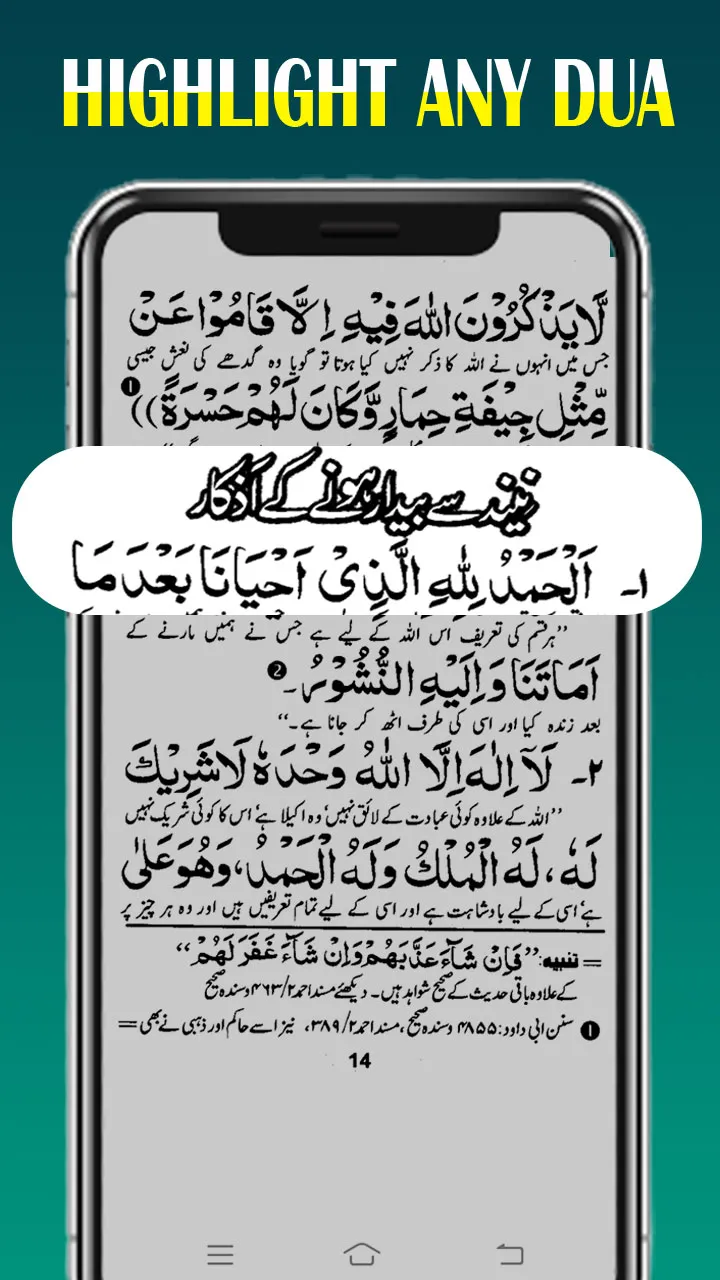 HIGHLIGHT ANY DUA
لَّا يَذْكُرُوْنَ اللّٰهَ فِيْهِ اِلَّا قَامُوْا عَنْ
جس میں انہوں نے اللہ کا ذکر نہیں کیا ہوتا تو گویا وہ گدھے کی نعش جیسی
مِّثْلِ جِيْفَةِ حِمَارٍ وَّكَانَ لَهُمْ حَسْرَةً)) ❶
نیند سے بیدار ہونے کے اذکار
۱۔ اَلْحَمْدُ لِلّٰهِ الَّذِىْ اَحْيَانَا بَعْدَ مَا
’’ہر قسم کی تعریف اس اللہ کے لیے ہے جس نے ہمیں مارنے کے
اَمَاتَنَا وَ اِلَيْهِ النُّشُوْرُ۔ ❷
بعد زندہ کیا اور اسی کی طرف اٹھ کر جانا ہے۔‘‘
۲۔ لَآ اِلٰهَ اِلَّا اللّٰهُ وَحْدَهٗ لَا شَرِيْكَ
’’اللہ کے علاوہ کوئی عبادت کے لائق نہیں‘ وہ اکیلا ہے‘ اس کا کوئی شریک نہیں
لَهٗ، لَهُ الْمُلْكُ وَلَهُ الْحَمْدُ، وَهُوَ عَلٰى
ہے‘ اسی کے لیے بادشاہت ہے اور اسی کے لیے تمام تعریفیں ہیں اور وہ ہر چیز پر
= تنبیه: ’’فَاِنْ شَآءَ عَذَّبَهُمْ وَاِنْ شَآءَ غَفَرَ لَهُمْ‘‘
کے علاوہ باقی حدیث کے صحیح شواہد ہیں۔ دیکھئے مسند احمد ۲/۴۶۳ وسندہ صحیح
❶ سنن ابی داود: ۴۸۵۵ وسندہ صحیح، مسند احمد ۲/۳۸۹، نیز اسے حاکم اور ذہبی نے بھی =
14